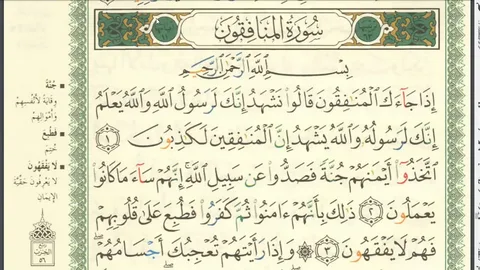 سُورَةُ المُنَافِقُونَ
بِسْمِ ٱللَّهِ ٱلرَّحْمَٰنِ ٱلرَّحِيمِ
إِذَا جَآءَكَ ٱلْمُنَٰفِقُونَ قَالُوا۟ نَشْهَدُ إِنَّكَ لَرَسُولُ ٱللَّهِ وَٱللَّهُ يَعْلَمُ
إِنَّكَ لَرَسُولُهُۥ وَٱللَّهُ يَشْهَدُ إِنَّ ٱلْمُنَٰفِقِينَ لَكَٰذِبُونَ ١
ٱتَّخَذُوٓا۟ أَيْمَٰنَهُمْ جُنَّةً فَصَدُّوا۟ عَن سَبِيلِ ٱللَّهِ ۚ إِنَّهُمْ سَآءَ مَا كَانُوا۟
يَعْمَلُونَ ٢ ذَٰلِكَ بِأَنَّهُمْ ءَامَنُوا۟ ثُمَّ كَفَرُوا۟ فَطُبِعَ عَلَىٰ قُلُوبِهِمْ
فَهُمْ لَا يَفْقَهُونَ ٣ ۞ وَإِذَا رَأَيْتَهُمْ تُعْجِبُكَ أَجْسَامُهُمْ ۖ
جُنَّةً
وِقَايَةً لأَنْفُسِهِمْ
وَأَمْوَالِهِمْ
فَطُبِعَ
خُتِمَ
لَا يَفْقَهُونَ
لا يَعْرِفُونَ حَقِّيَّةَ
الإيمَانِ
الحزب
٥٦